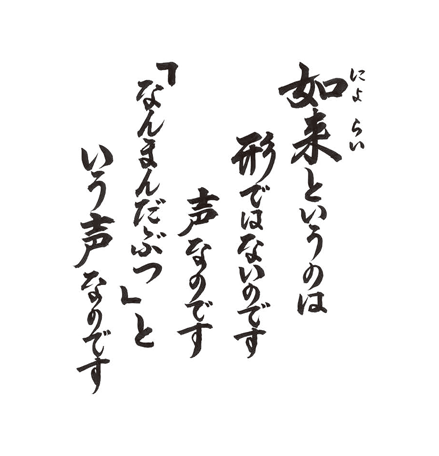 如来というのは
にょらい
形ではないのです
声なのです
「なんまんだぶつ」と
いう声なのです